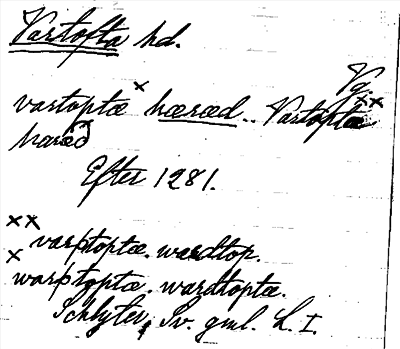 Vartofta hd.
Vg.
vartoptæ × hæræd.. Vartoptæ ××
haræd
Efter 1281.
×× varþtoptæ. wardtop.
× warþtoptæ. wardtoptæ.
Schlyter, Sv. gml. L. I.